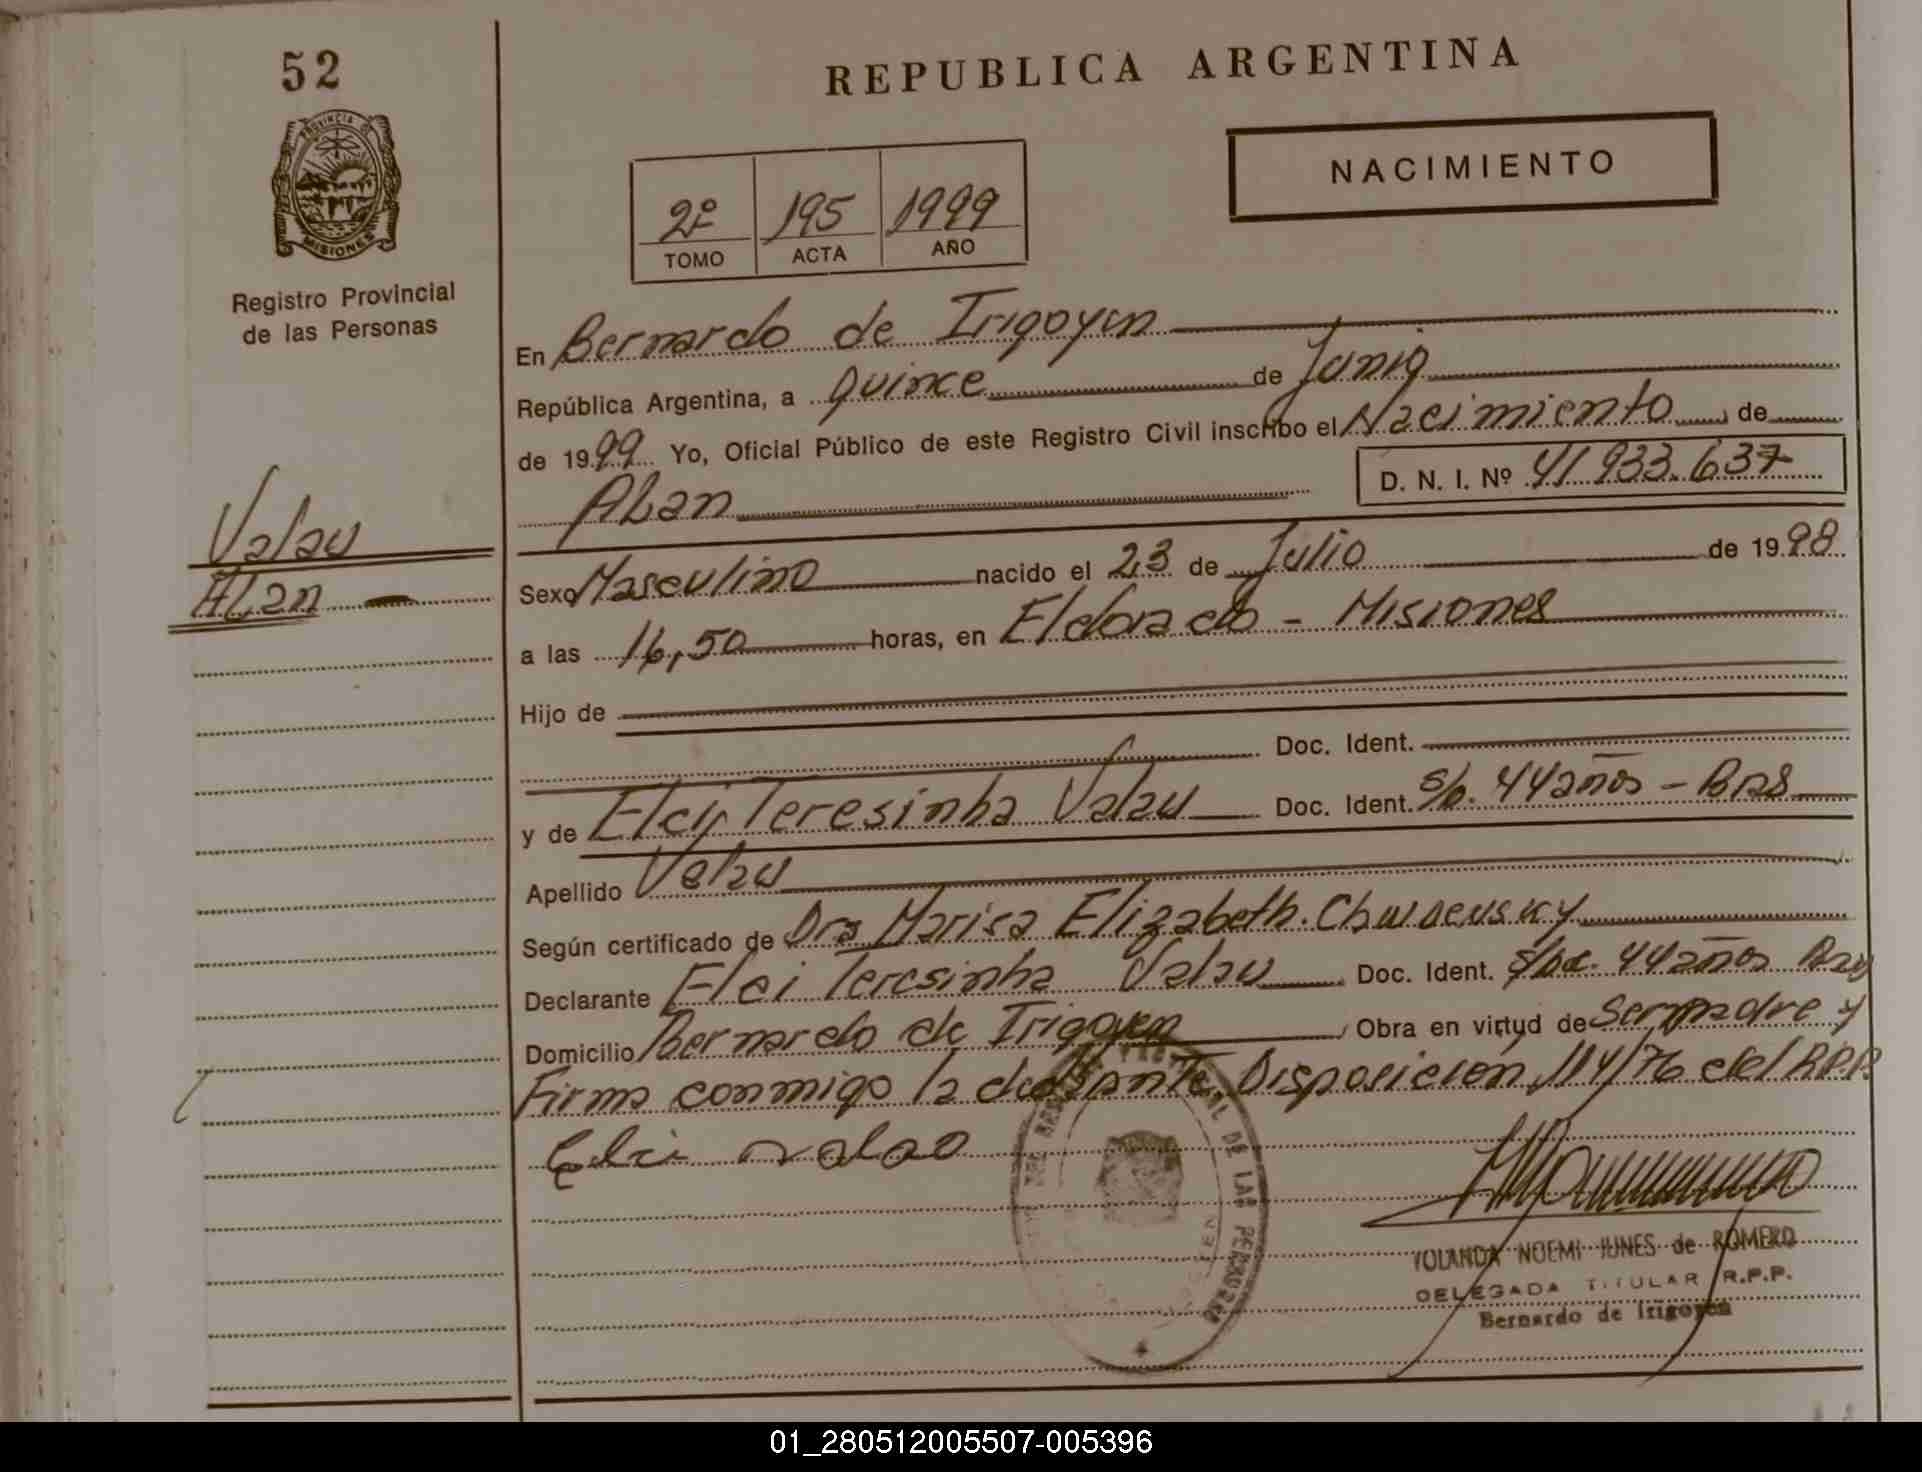 52
PROVINCIA DE
MISIONES
Registro Provincial
de las Personas
REPUBLICA ARGENTINA
NACIMIENTO
2º 195 1999
TOMO ACTA AÑO
En Bernardo de Irigoyen
República Argentina, a quince de Junio
de 1999 Yo, Oficial Público de este Registro Civil inscribo el Nacimiento, de
ALan D. N. I. Nº 41 933.637
Valau
ALan
Sexo Masculino nacido el 23 de Julio de 1998
a las 16,50 horas, en Eldorado - Misiones
Hijo de
Doc. Ident.
y de Elci Teresinha Valau Doc. Ident. s/b. 44 años - Bras
Apellido Valau
Según certificado de Dra Marisa Elizabeth.
Declarante Elci Teresinha Valau Doc. Ident. 44 años Bras
Domicilio Bernardo de Irigoyen, Obra en virtud de Ser madre y
Firma conmigo la declarante, Disposición 114/76 del R.P.P.
Elci valao
DE LAS PERSONAS
YOLANDA NOEMI JUNES de ROMERO
DELEGADA TITULAR R.P.P.
Bernardo de Irigoyen
01_280512005507-005396